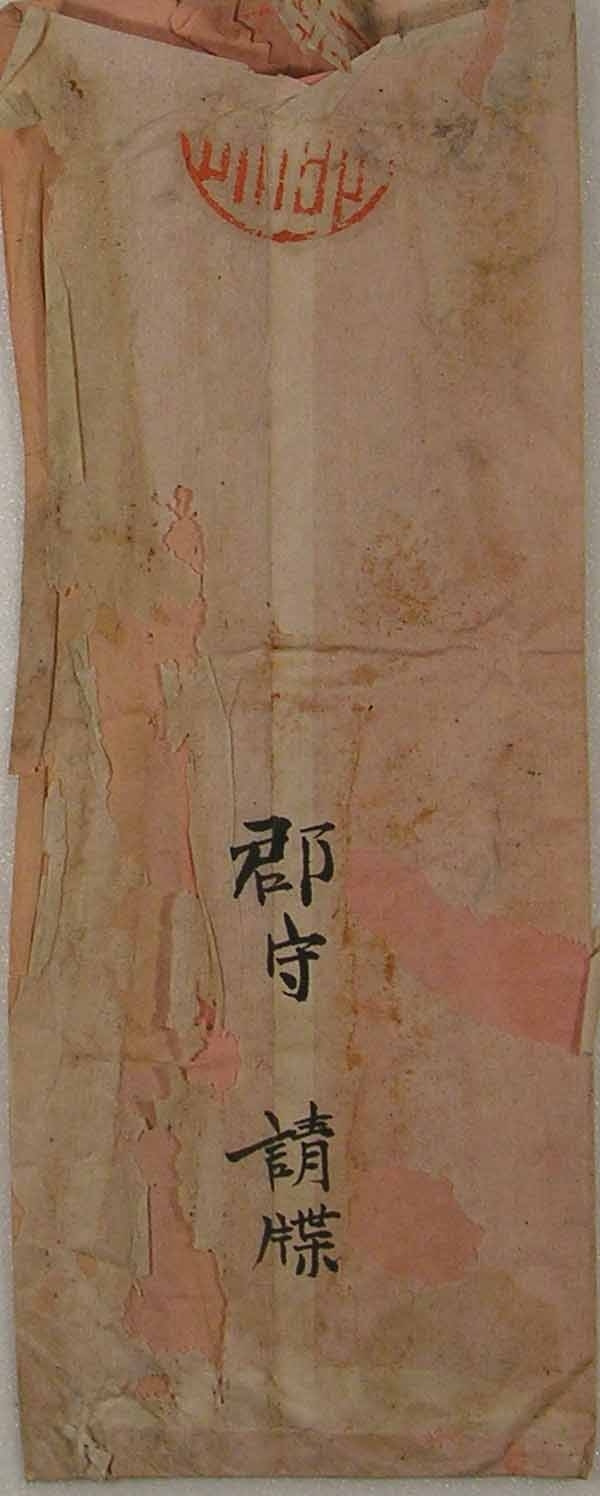 郡守 請牒